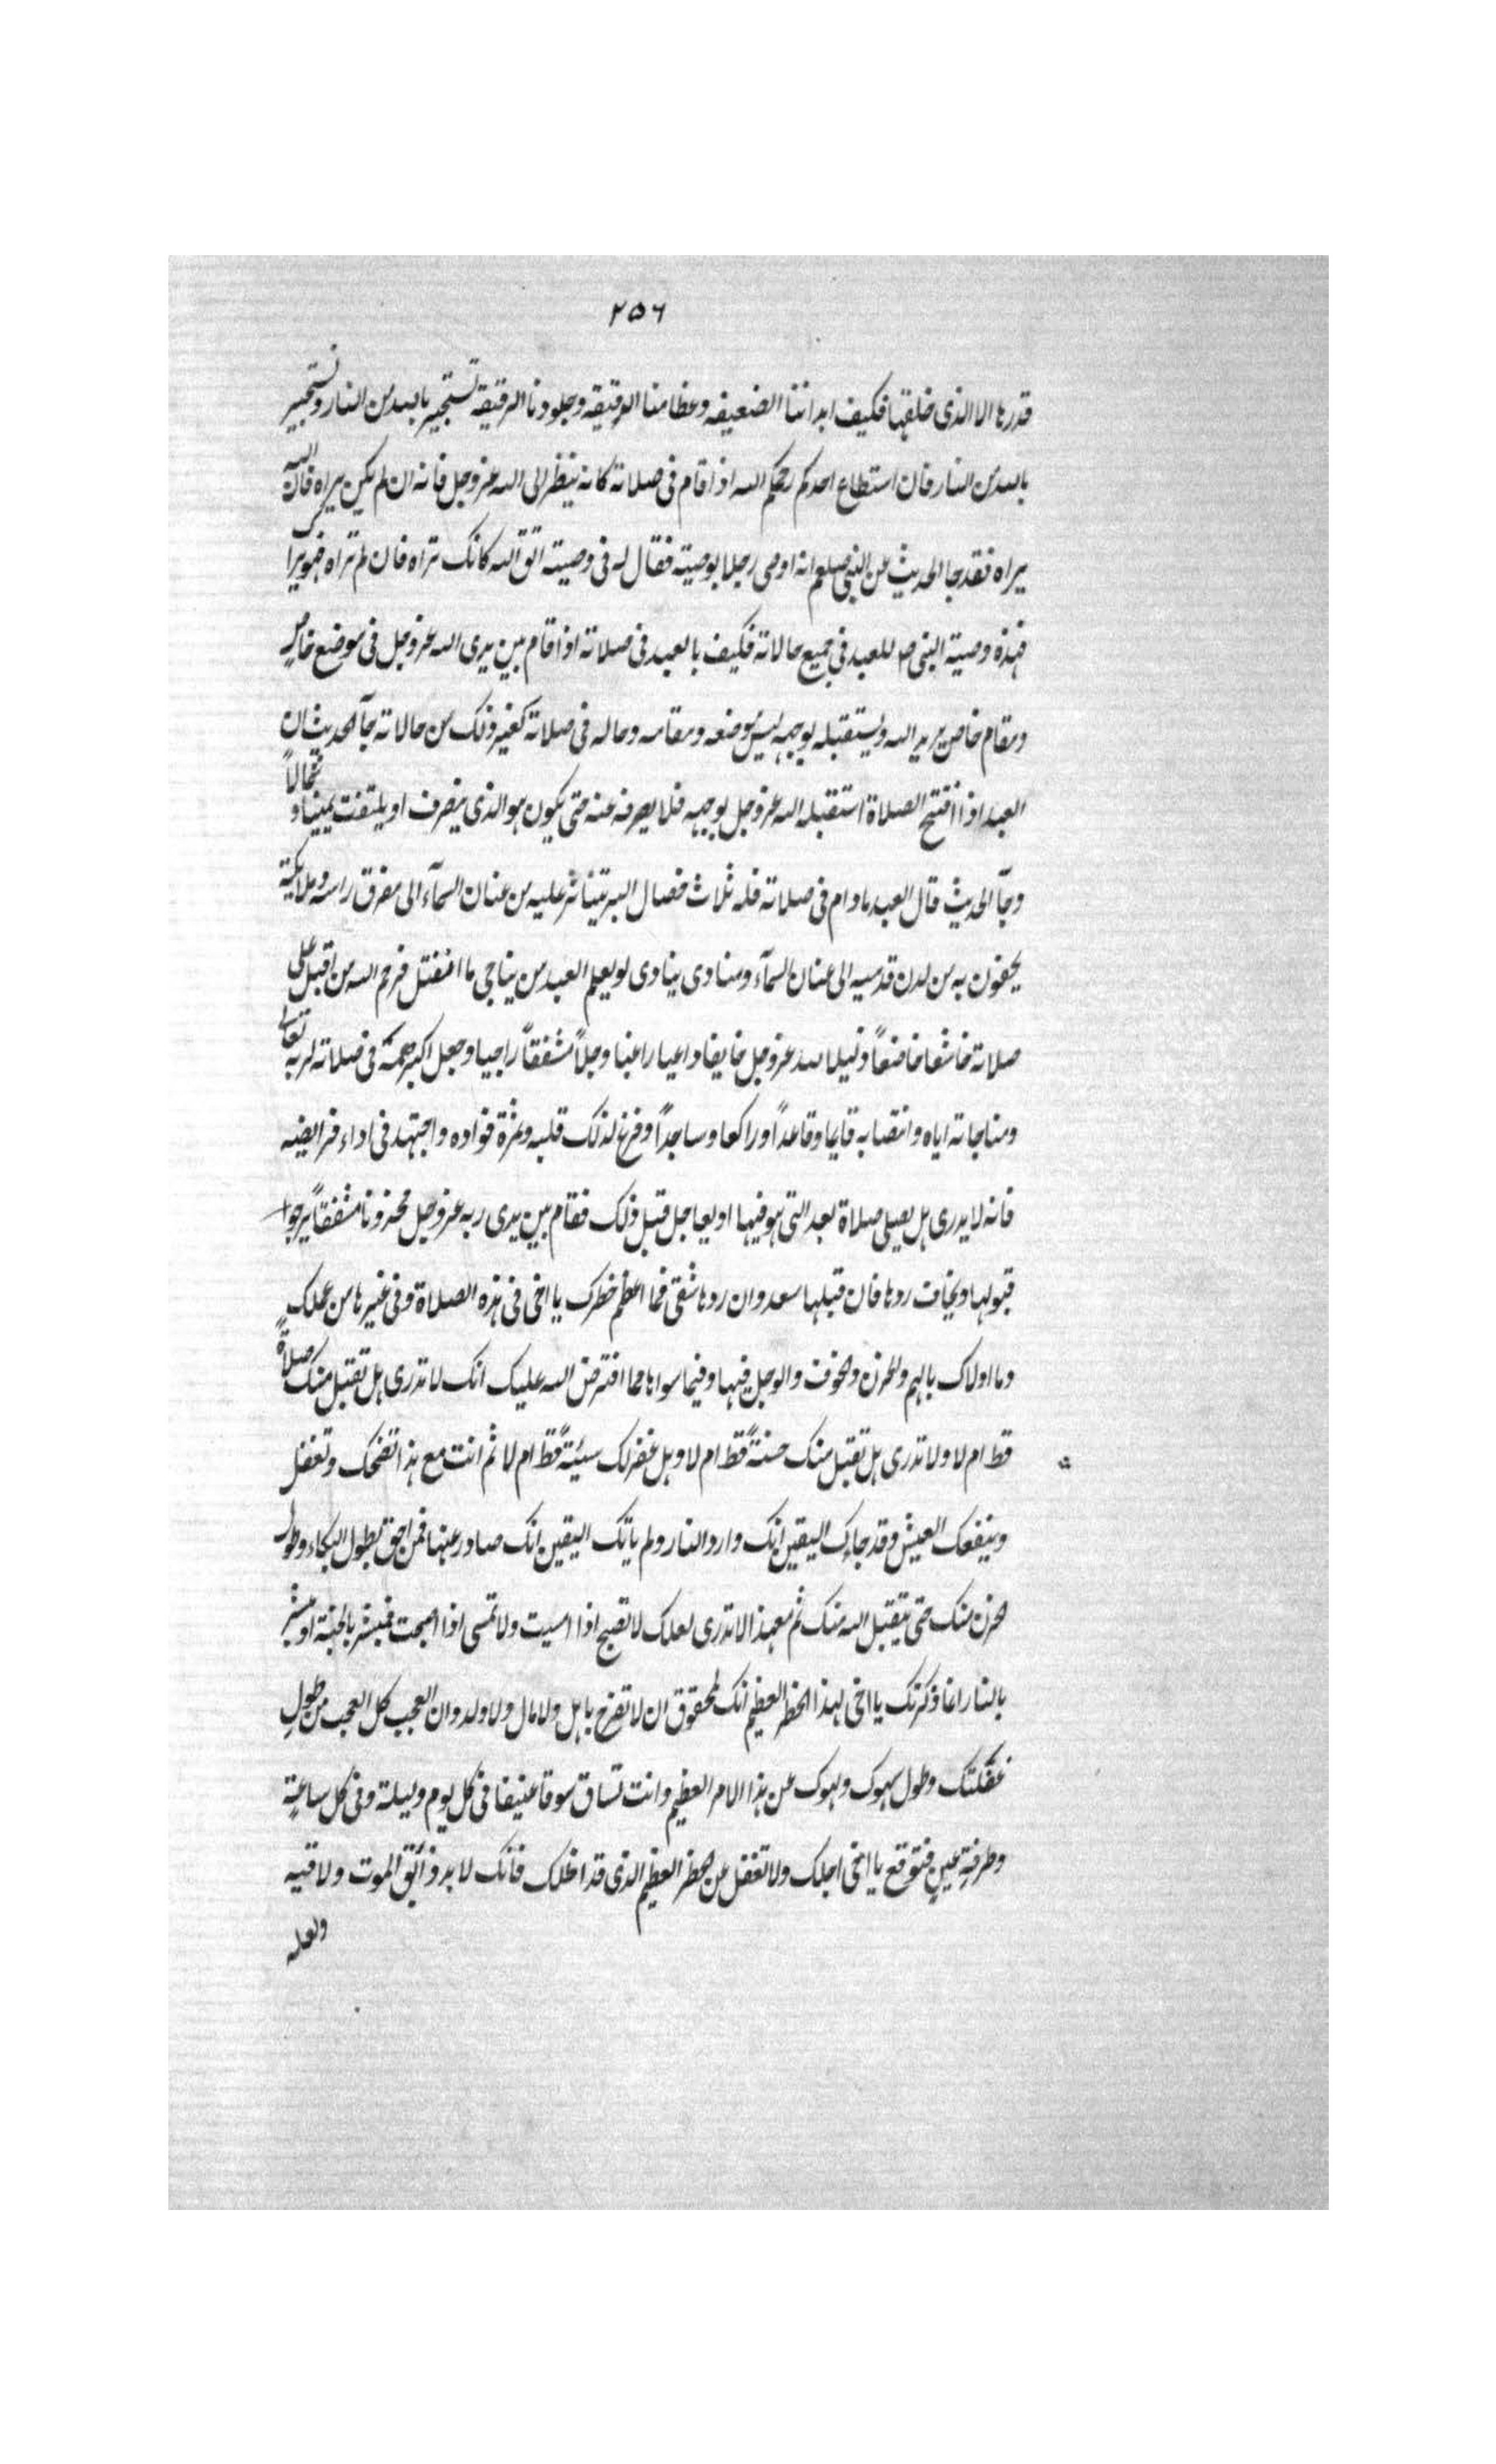 ٢٥٦
قدرها الا الذى خلقها فكيف ابداننا الضعيفه وعظامنا الوقيقه وجلودنا الرقيقة تستجير بالله من النار ونستجير
بالله من النار فان استطاع احدكم رحمكم الله اذا قام فى صلاته كانه ينظر الى الله عز وجل فانه ان لم يكن يراه فان الله
يراه فقد جا الحديث عن النبى صلعم انه اوصى رجلا بوصية فقال له فى وصيته اتق الله كانك تراه فان لم تراه فهو يراك
فهذه وصية النبى ص للعبد فى جميع حالاته فكيف بالعبد فى صلاته اذا قام بين يدى الله عز وجل فى موضع خاصٍ
ومقام خاص يريد الله ويستقبله بوجهه ليس موضعه ومقامه وحاله فى صلاته كغير ذلك من حالاته جآ الحديث ان
العبد اذا افتتح الصلاة استقبله الله عز وجل بوجهه فلا يصرفه عنه حتى يكون هو الذى ينصرف او يلتفت يمينا و شمالاً
وجآ الحديث قال العبد مادام فى صلاته فله ثلاث خصال البر تيناثر عليه من عنان السمآء الى مفرق راسه وملايكة
يحفون به من لدن قدميه الى عنان السمآء ومنادى ينادى لو يعلم العبد من يناجى ما انفتل فرحم الله من اقبل على
صلاته خاشعا خاضعاً ذليلا لله عز وجل خايفا داعيا راغبا وجلاً مشفقاً راجيا وجعل اكبر همه فى صلاته لربه تعالى
ومناجاته اياه وانتصابه قايما وقاعداً وراكعا وساجداً وفرغ لذلك قلبه وثمرة فواده واجتهد فى اداء فرايضه
فانه لا يدرى هل يصلى صلاة بعد التى هو فيها او يعاجل قبل ذلك فقام بين يدى ربه عز وجل محزونا مشفقاً يرجوا
قبولها ويخاف ردها فان قبلها سعد وان ردها شقى فما اعظم خطرك يا اخى فى هذه الصلاة وفى غيرها من عملك
وما اولاك بالهم والحزن والخوف والوجل فيها وفيما سواها مما افترض الله عليك انك لا تدرى هل تقبل منك صلاةٌ
قط ام لا ولا تدرى هل تقبل منك حسنةً قط ام لا وهل غفر لك سيئةً قط ام لا ثم انت مع هذا تضحك وتغفل
وينفعك العيش وقد جاءك اليقين انك وارد النار ولم ياتك اليقين انك صادر عنها فمن احق بطول البكاء وطول
الحزن منك حتى يتقبل الله منك ثم مع هذا لا تدرى لعلك لا تصبح اذا امسيت ولا تمسى اذا اصبحت فمبشر بالجنة او مبشر
بالنار انما ذكرتك يا اخى لهذا الخطر العظيم انك لمحقوق ان لا تفرح باهل ولا مال ولا ولد وان العجب كل العجب من طولِ
غفلتك وطول سهوك ولهوك عن هذا الامر العظيم وانت تساق سوقا عنيفا فى كل يوم وليلة وفى كل ساعةٍ
وطرفةِ عينٍ فتوقع يا اخى اجلك ولا تغفل عن الخطر العظيم الذى قد اظلك فانك لا بد ذائق الموت ولاقيه
ولعله